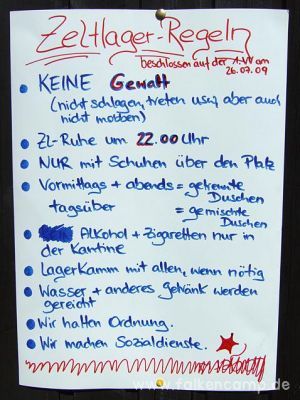 Zeltlager-Regeln
beschlossen auf der 1.VV am
26.07.09
KEINE Gewalt
(nicht schlagen, treten usw, aber auch
nicht mobben)
ZL-Ruhe um 22.00 Uhr
NUR mit Schuhen über den Platz
Vormittags + abends = getrennte
Duschen
tagsüber = gemischte
Duschen
Alkohol + Zigaretten nur in
der Kantine
LagerKamm mit allen, wenn nötig
Wasser + anderes getränk werden
gereicht
Wir halten Ordnung.
Wir machen Sozialdienste.
www.falkencamp.de